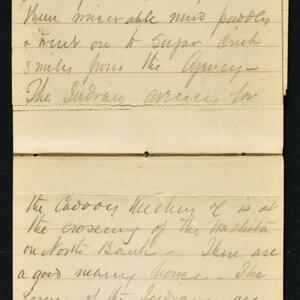 these miserable mud puddles
& went on to Sugar Creek
3 miles from the Agency –
The Indian agency for
the Caddos Wichey &c is at
the crossing of the Wachita
on North Bank – There are
a good many houses – The
of the Indians are